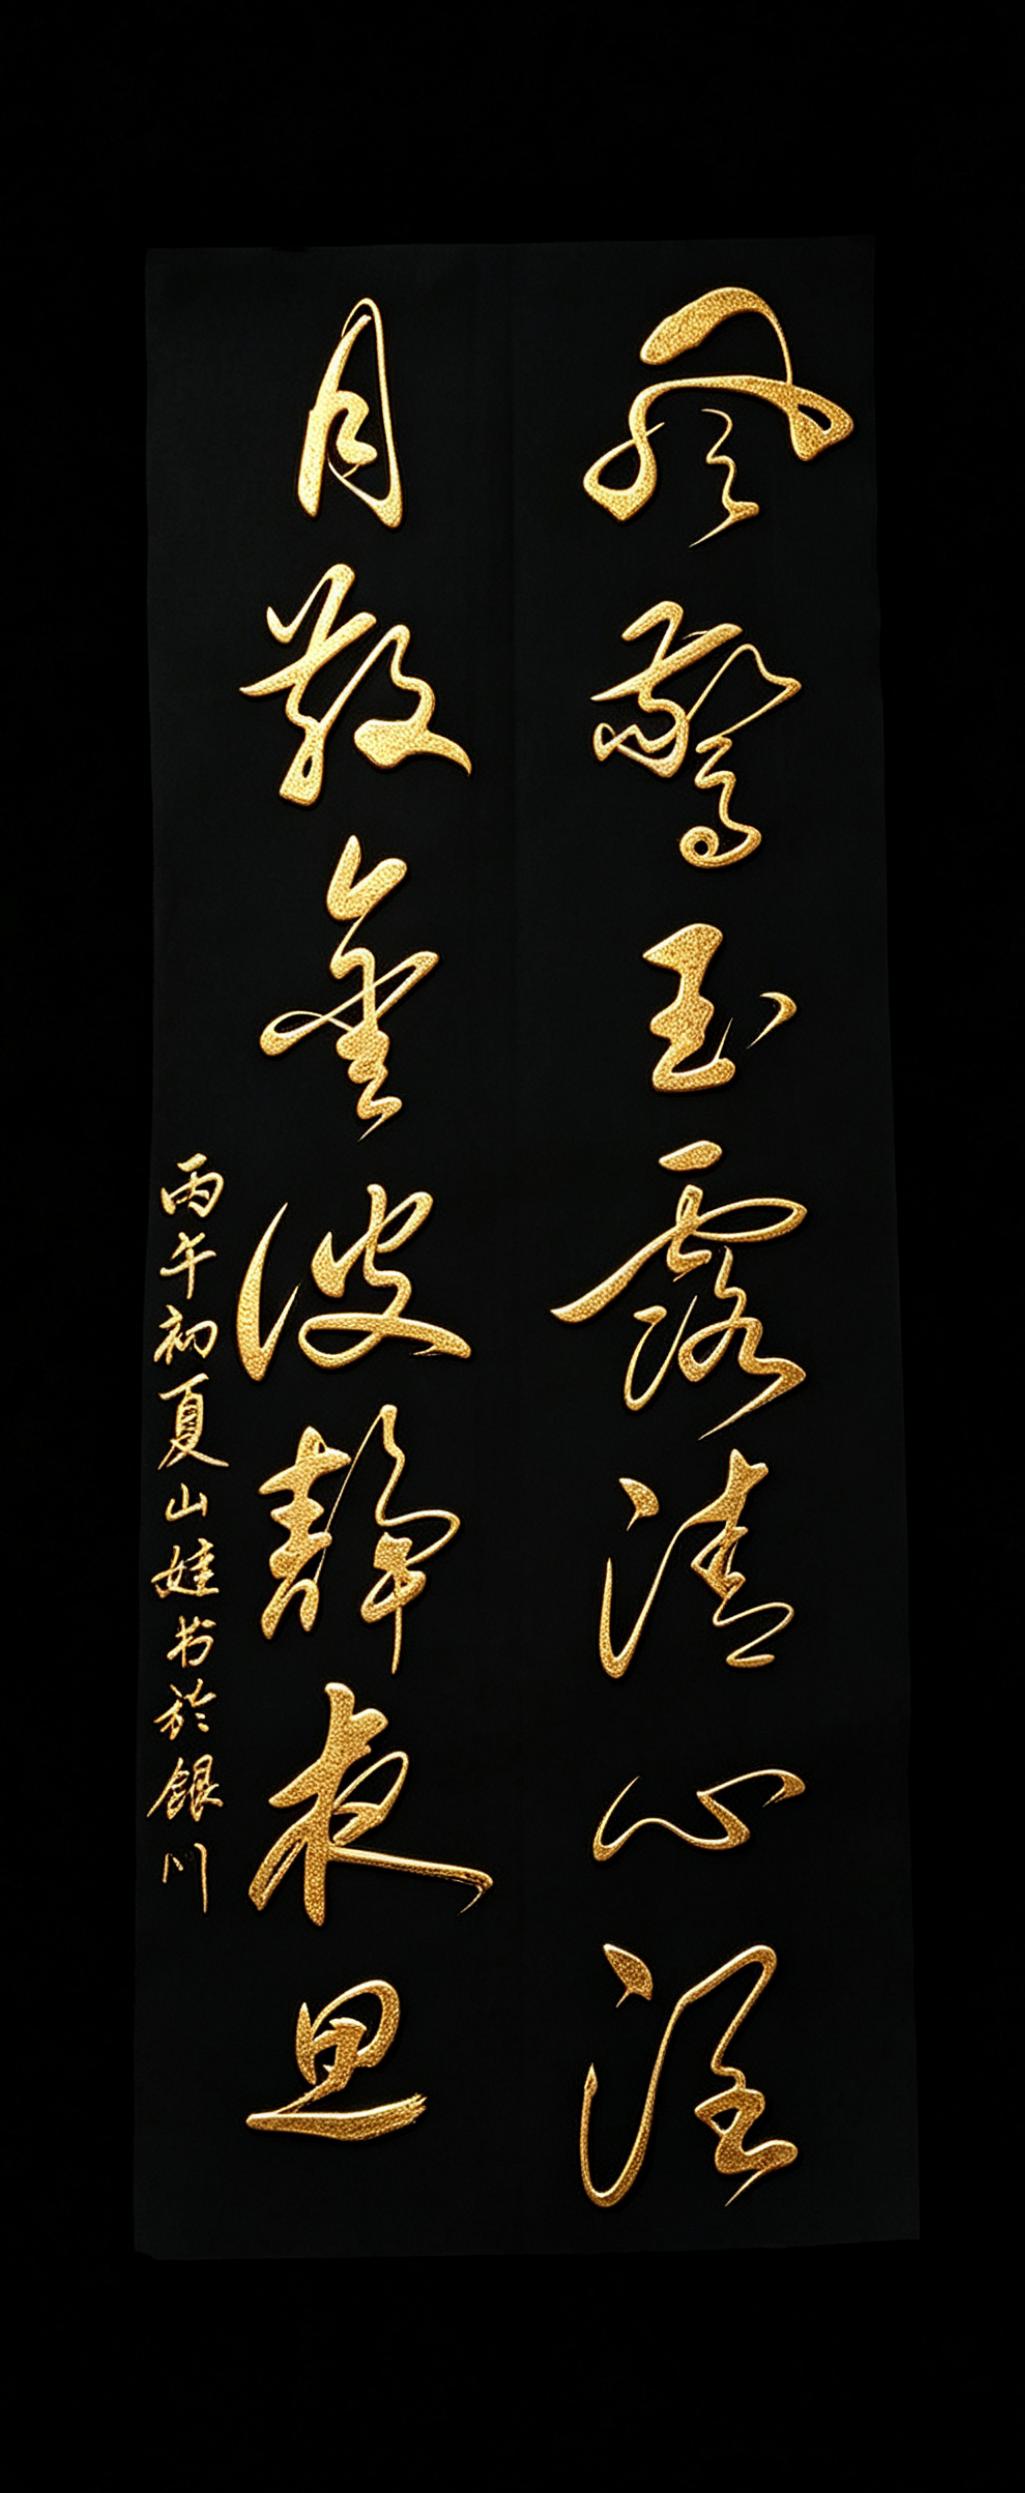 风惊玉露清心径
月散金波静夜思
丙午初夏山娃书於银川